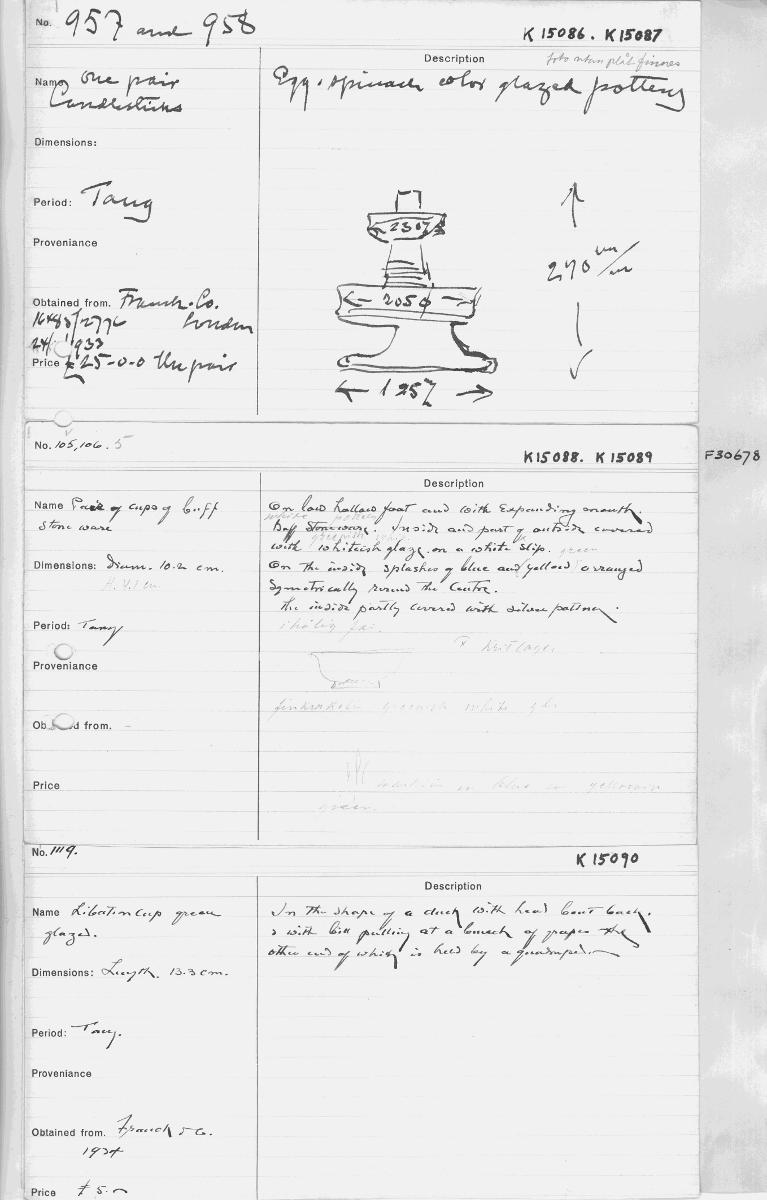 No. 957 and 958
K 15086. K 15087
Description
foto utan plåt finnes
Name One pair
Candlesticks
Egg & spinach color glazed pottery
Dimensions:
Period: Tang
Proveniance
Obtained from. Franck & Co.
London
1933
Price £25-0-0 the pair
230
2050
125
270 m/m
No. 105, 106. 5
K15088. K 15089
F30678
Description
Name Pair of cups of buff
stone ware
On low hollow foot and with expanding mouth.
Buff Stoneware. Inside and part of outside covered
with whiteish glaze on a white slip. green
Dimensions: diam. 10.2 cm.
On the inside splashes of blue and yellow arranged
Symetrically round the Centre.
the inside partly covered with silver patina.
Period: Tang
Proveniance
greenish white
Obtained from. -
Price
blue
green.
No. 1119.
K 15090
Description
Name Libation cup green
glazed.
In the shape of a duck with head bent back.
& with bill pulling at a bunch of grapes the
other end of which is held by a quadruped.
Dimensions: Length. 13.3 cm.
Period: Tang.
Proveniance
Obtained from. Franck & Co.
1924
Price £5.-